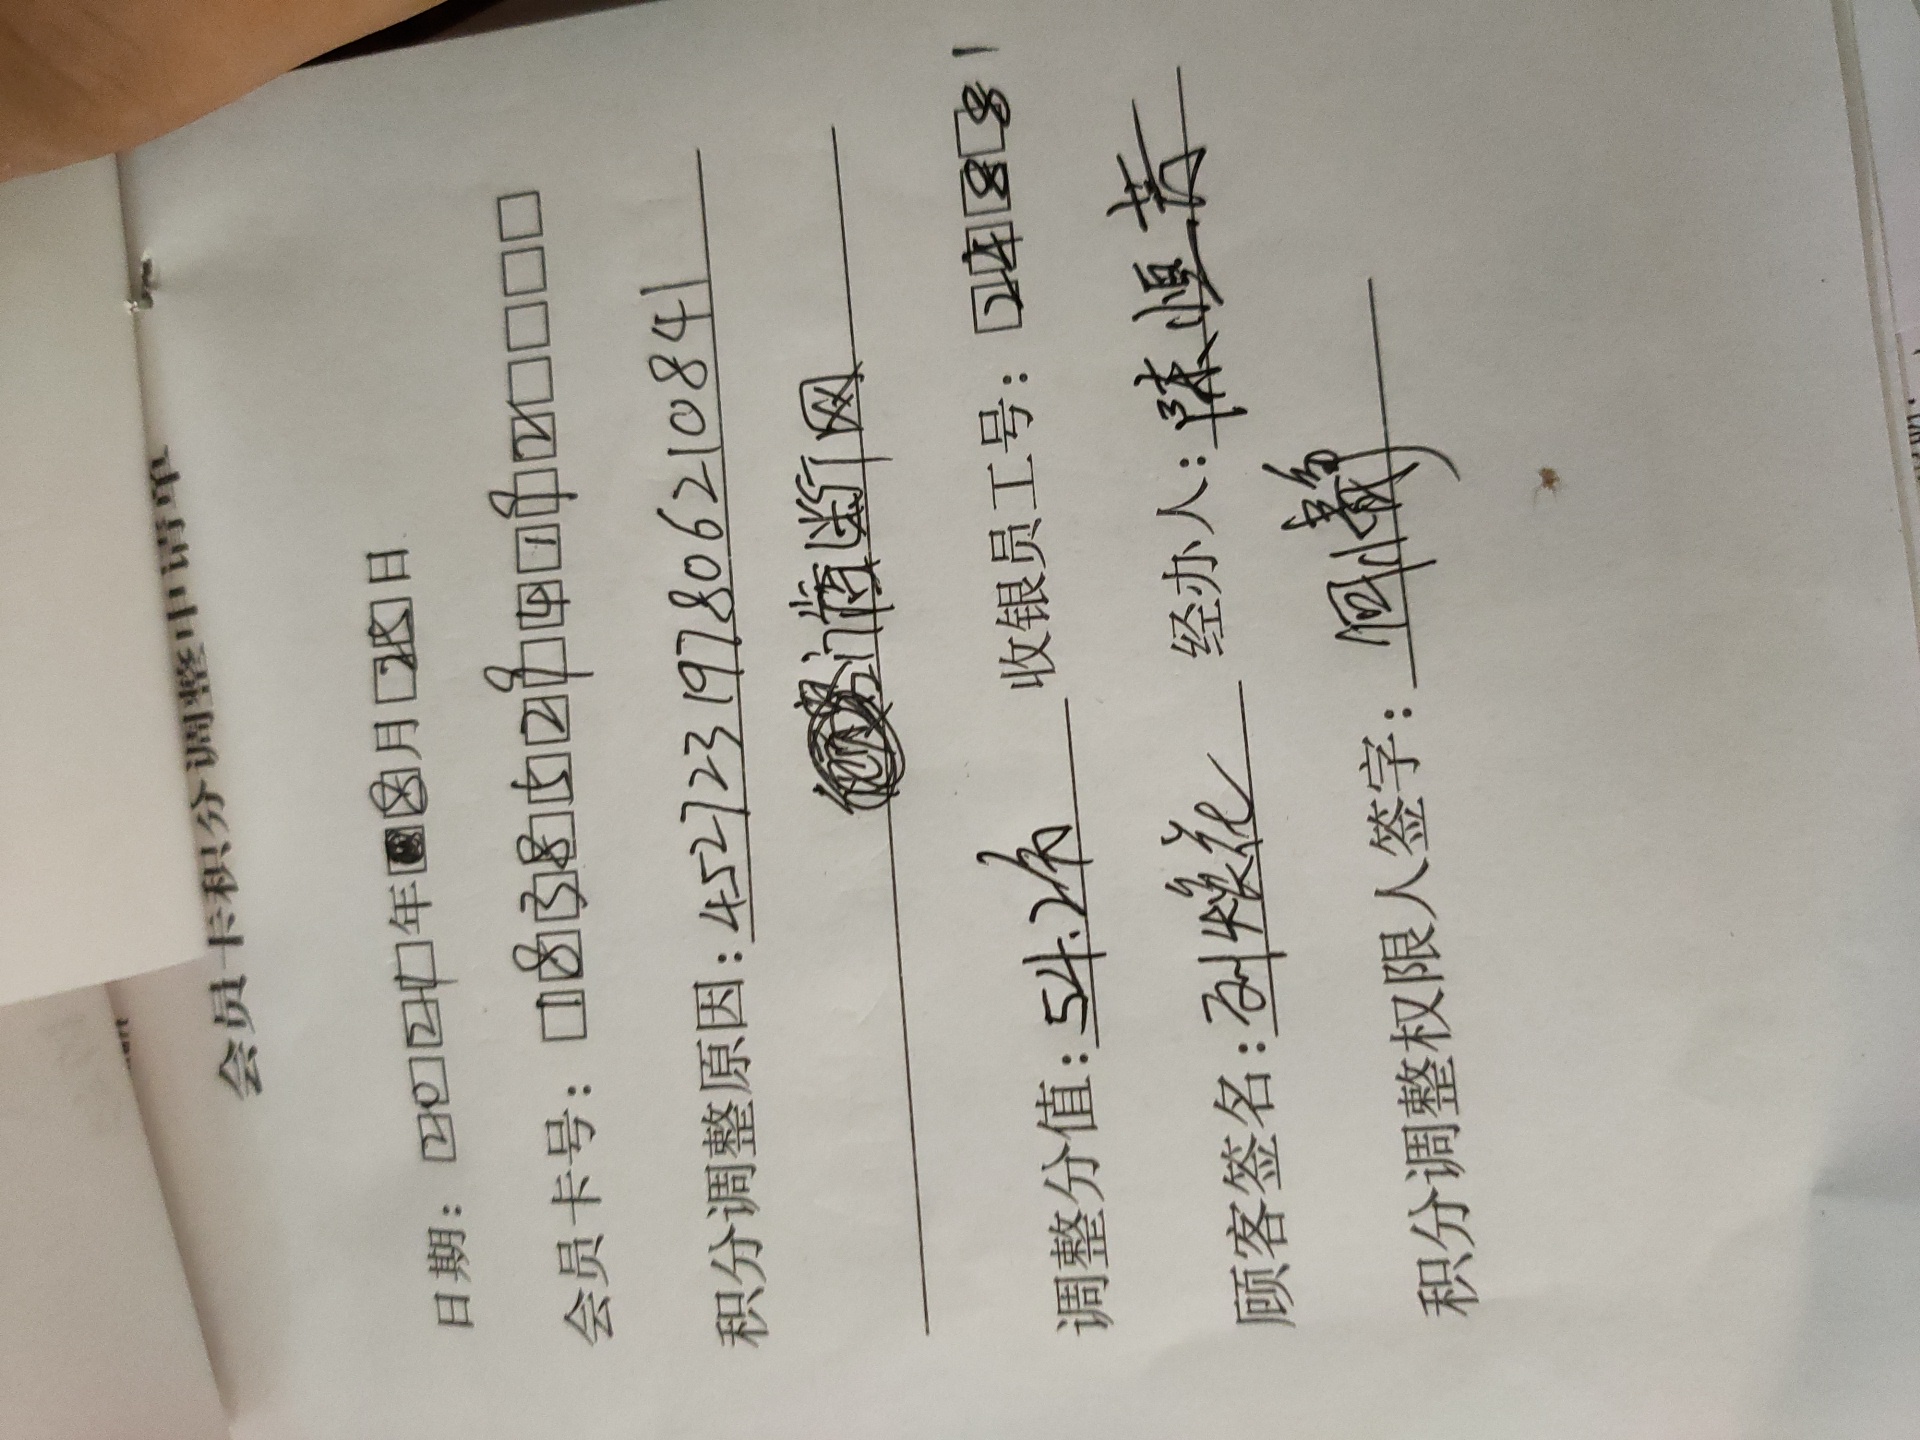 会员卡积分调整申请单
日期：2021年8月25日
会员卡号：18385294192
积分调整原因：452723197806210841
门店断网
调整分值：54.2分 收银员工号：24881
顾客签名： 经办人：陈恒芳
积分调整权限人签字：